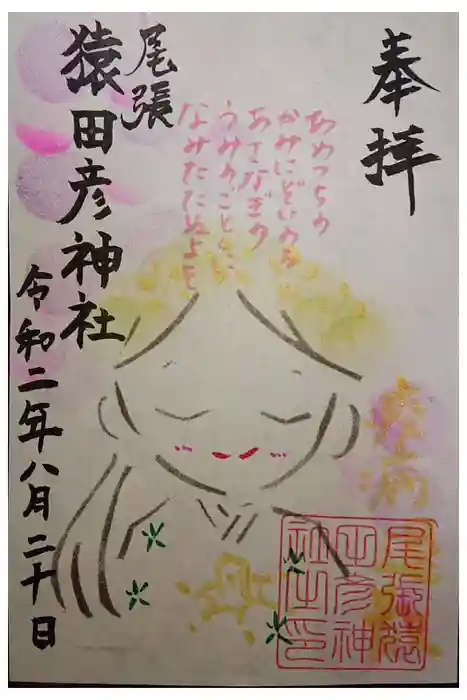 奉拝
あめつちの
かみにぞいのる
あさなぎの
うみのごとくに
なみたたぬよを
尾張
猿田彦神社
令和二年八月二十日
尾張猿
田彦神
社之印